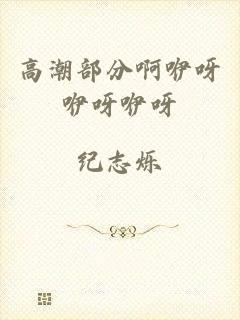 高潮部分啊咿呀
咿呀咿呀
纪志烁